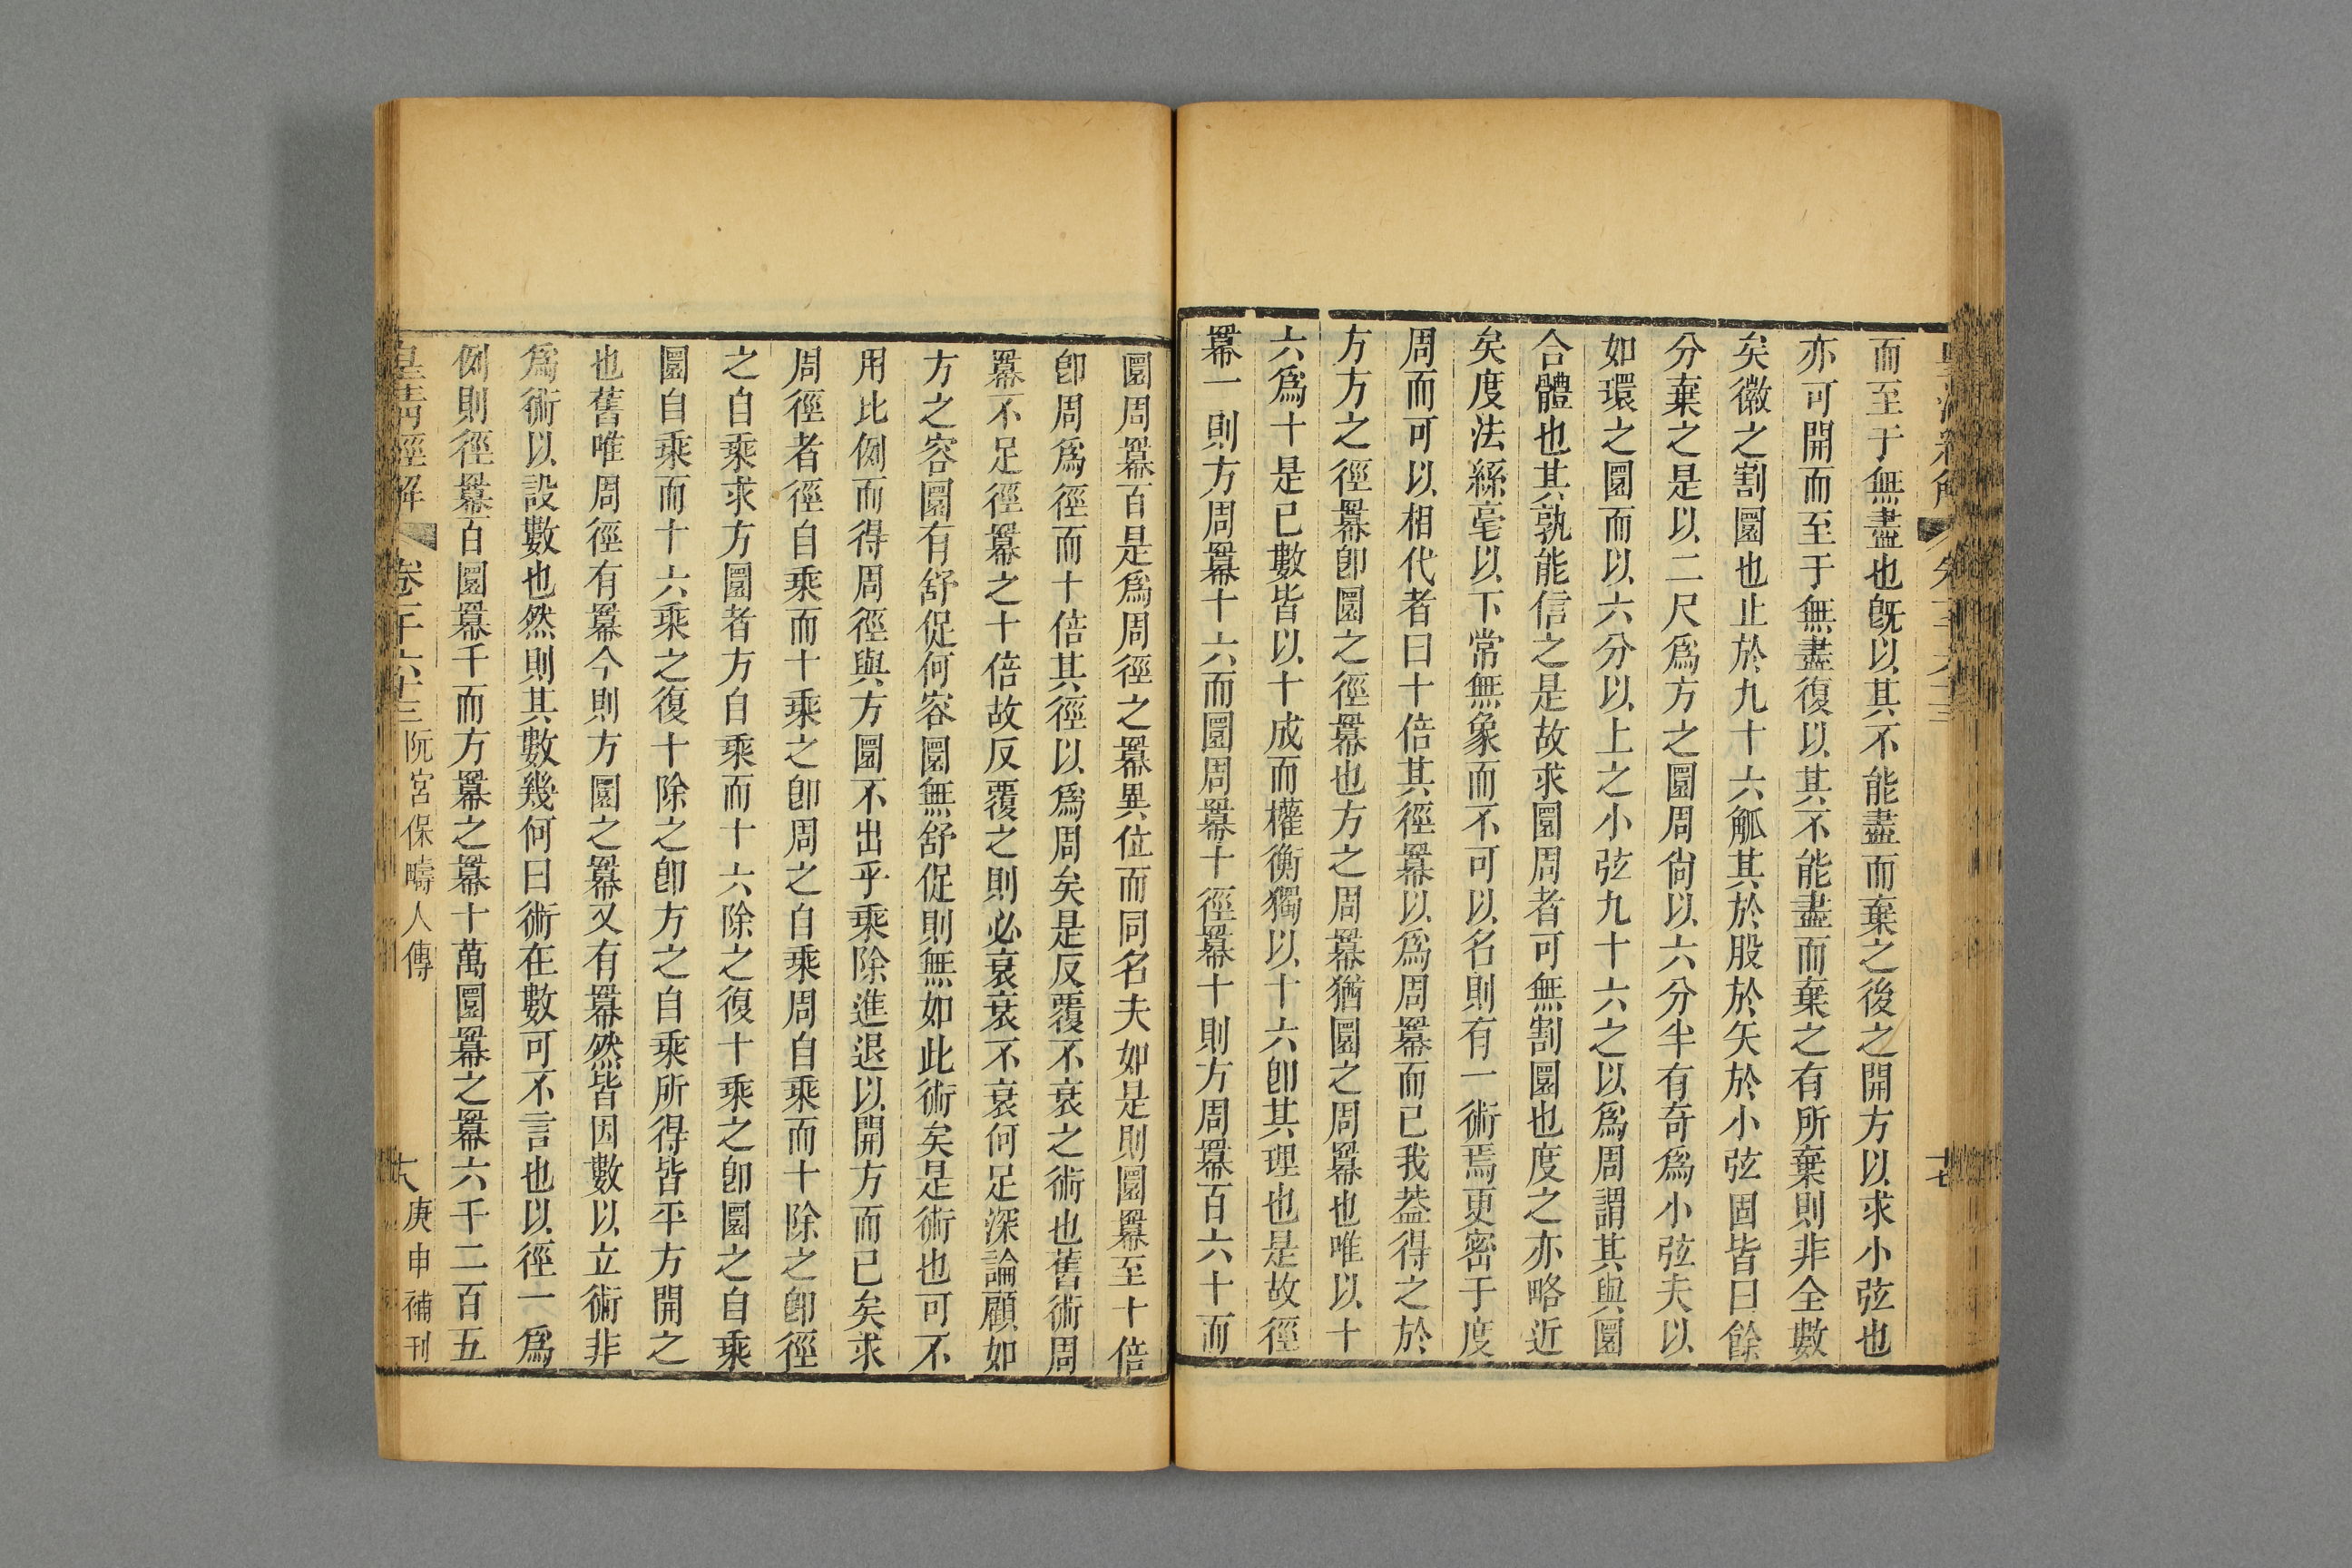 而至于無盡也旣以其不能盡而棄之後之開方以求小弦也
亦可開而至于無盡復以其不能盡而棄之有所棄則非全數
矣徽之割圜也止於九十六觚其於股於矢於小弦固皆曰餘
分棄之是以二尺爲方之圜周尙以六分半有奇爲小弦夫以
如環之圜而以六分以上之小弦九十六之以爲周謂其與圜
合體也其孰能信之是故求圜周者可無割圜也度之亦略近
矣度法絲毫以下常無象而不可以名則有一術焉更密于度
周而可以相代者曰十倍其徑羃以爲周羃而已我葢得之於
方方之徑羃卽圜之徑羃也方之周羃猶圜之周羃也唯以十
六爲十是已數皆以十成而權衡獨以十六卽其理也是故徑
羃一則方周羃十六而圜周羃十徑羃十則方周羃百六十而
圜周羃百是爲周徑之羃異位而同名夫如是則圜羃至十倍
卽周爲徑而十倍其徑以爲周矣是反覆不衰之術也舊術周
羃不足徑羃之十倍故反覆之則必衰衰不衰何足深論顧如
方之容圜有舒促何容圜無舒促則無如此術矣是術也可不
用比例而得周徑與方圜不出乎乘除進退以開方而已矣求
周徑者徑自乘而十乘之卽周之自乘周自乘而十除之卽徑
之自乘求方圜者方自乘而十六除之復十乘之卽圜之自乘
圜自乘而十六乘之復十除之卽方之自乘所得皆平方開之
也舊唯周徑有羃今則方圜之羃又有羃然皆因數以立術非
爲術以設數也然則其數幾何曰術在數可不言也以徑一爲
例則徑羃百圜羃千而方羃之羃十萬圜羃之羃六千二百五
皇淸經解 卷千六十三 阮宮保疇人傳 大 庚申補刊